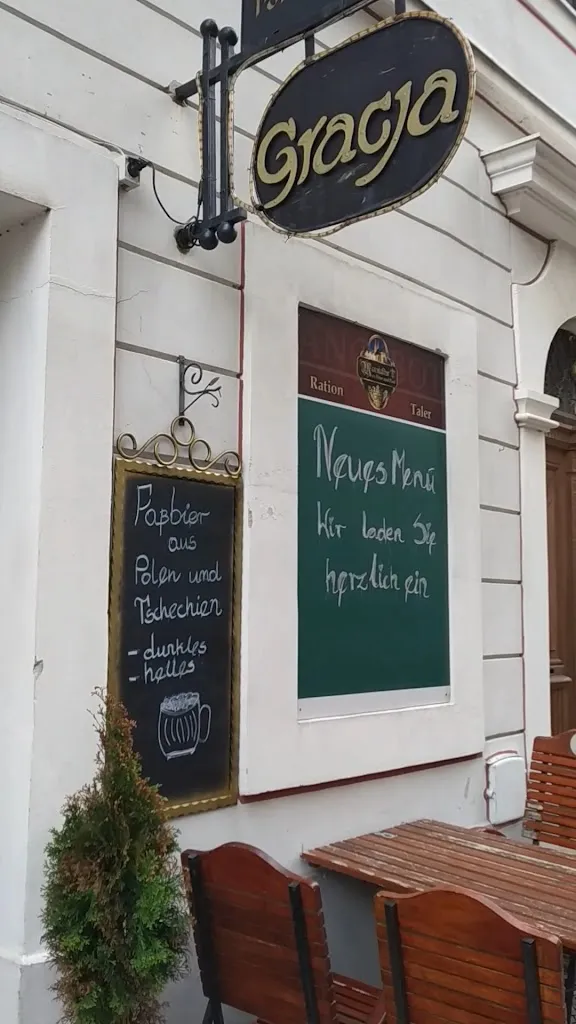 Gracja
Ration
Taler
Neues Menü
Wir laden Sie
herzlich ein
Faßbier
aus
Polen und
Tschechien
- dunkles
- helles